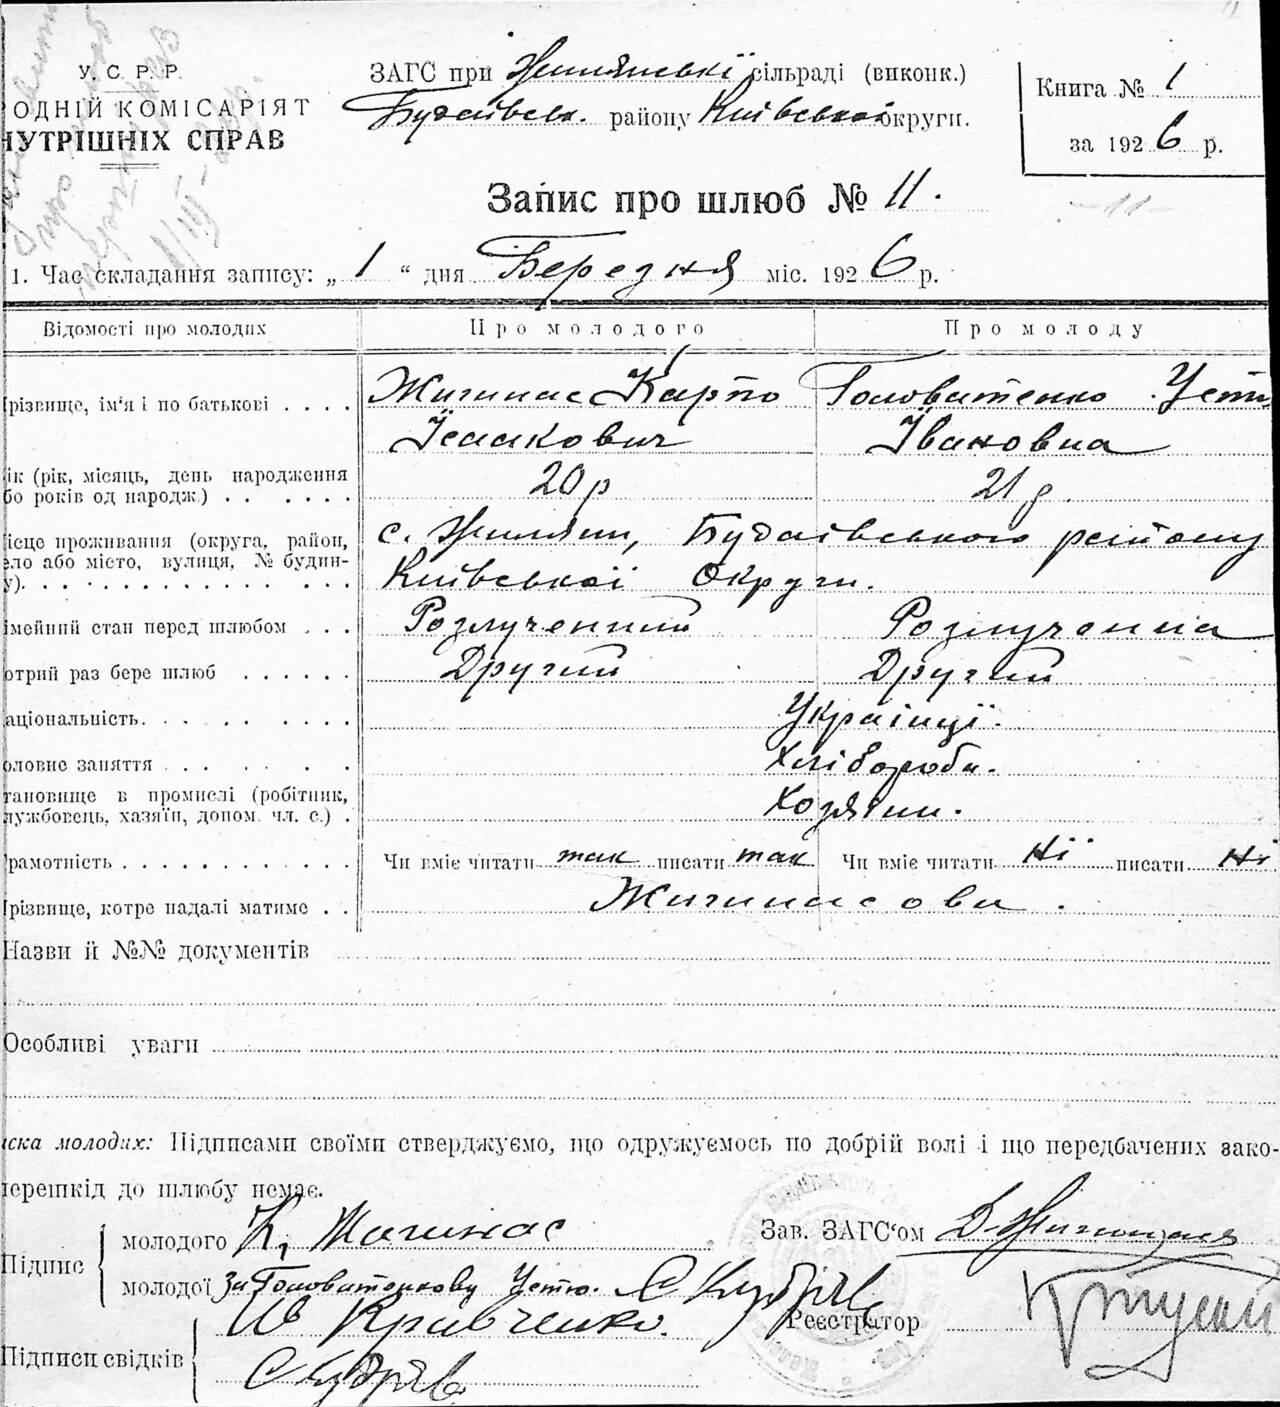 У. С. Р. Р.
ОДНІЙ КОМІСАРІЯТ
НУТРІШНІХ СПРАВ
ЗАГС при Жилянські сільраді (виконк.)
Будаївськ. району Київської округи.
Книга № 1
за 1926 р.
Запис про шлюб № 11.
-11-
1. Час складання запису: „ 1 “ дня Березня міс. 1926 р.
Відомості про молодих Про молодого Про молоду
різвище, ім'я і по батькові . . . . Жигинас Карпо Головатенко Усти
Ісаакович Івановна
ік (рік, місяць, день народження
бо років од народж.) . . . . . . 20 р 21 р.
ісце проживання (округа, район, с. Жиляни, Будаївського району
ело або місто, вулиця, № будин-
у). . . . . . . . . . . . Київської Округи.
імейний стан перед шлюбом . . . Розлученний Розлученна
отрий раз бере шлюб . . . . . . Другий Другий
аціональність. . . . . . . . . Українці.
оловне заняття . . . . . . . Хлібороби.
тановище в промислі (робітник,
лужбовець, хазяїн, допом. чл. с.) . Хозяїни.
рамотність . . . . . . . . . . Чи вміє читати так писати так Чи вміє читати ні писати ні
різвище, котре надалі матиме . . Жигинасови.
Назви й №№ документів
Особливі уваги
иска молодих: Підписами своїми стверджуємо, що одружуємось по добрій волі і що передбачених зако-
перешкід до шлюбу немає.
Підпис
молодого К. Жигинас
Зав. ЗАГС'ом
молодої За Головатенкову Устю.
Реєстратор
Підписи свідків
Кравченко.